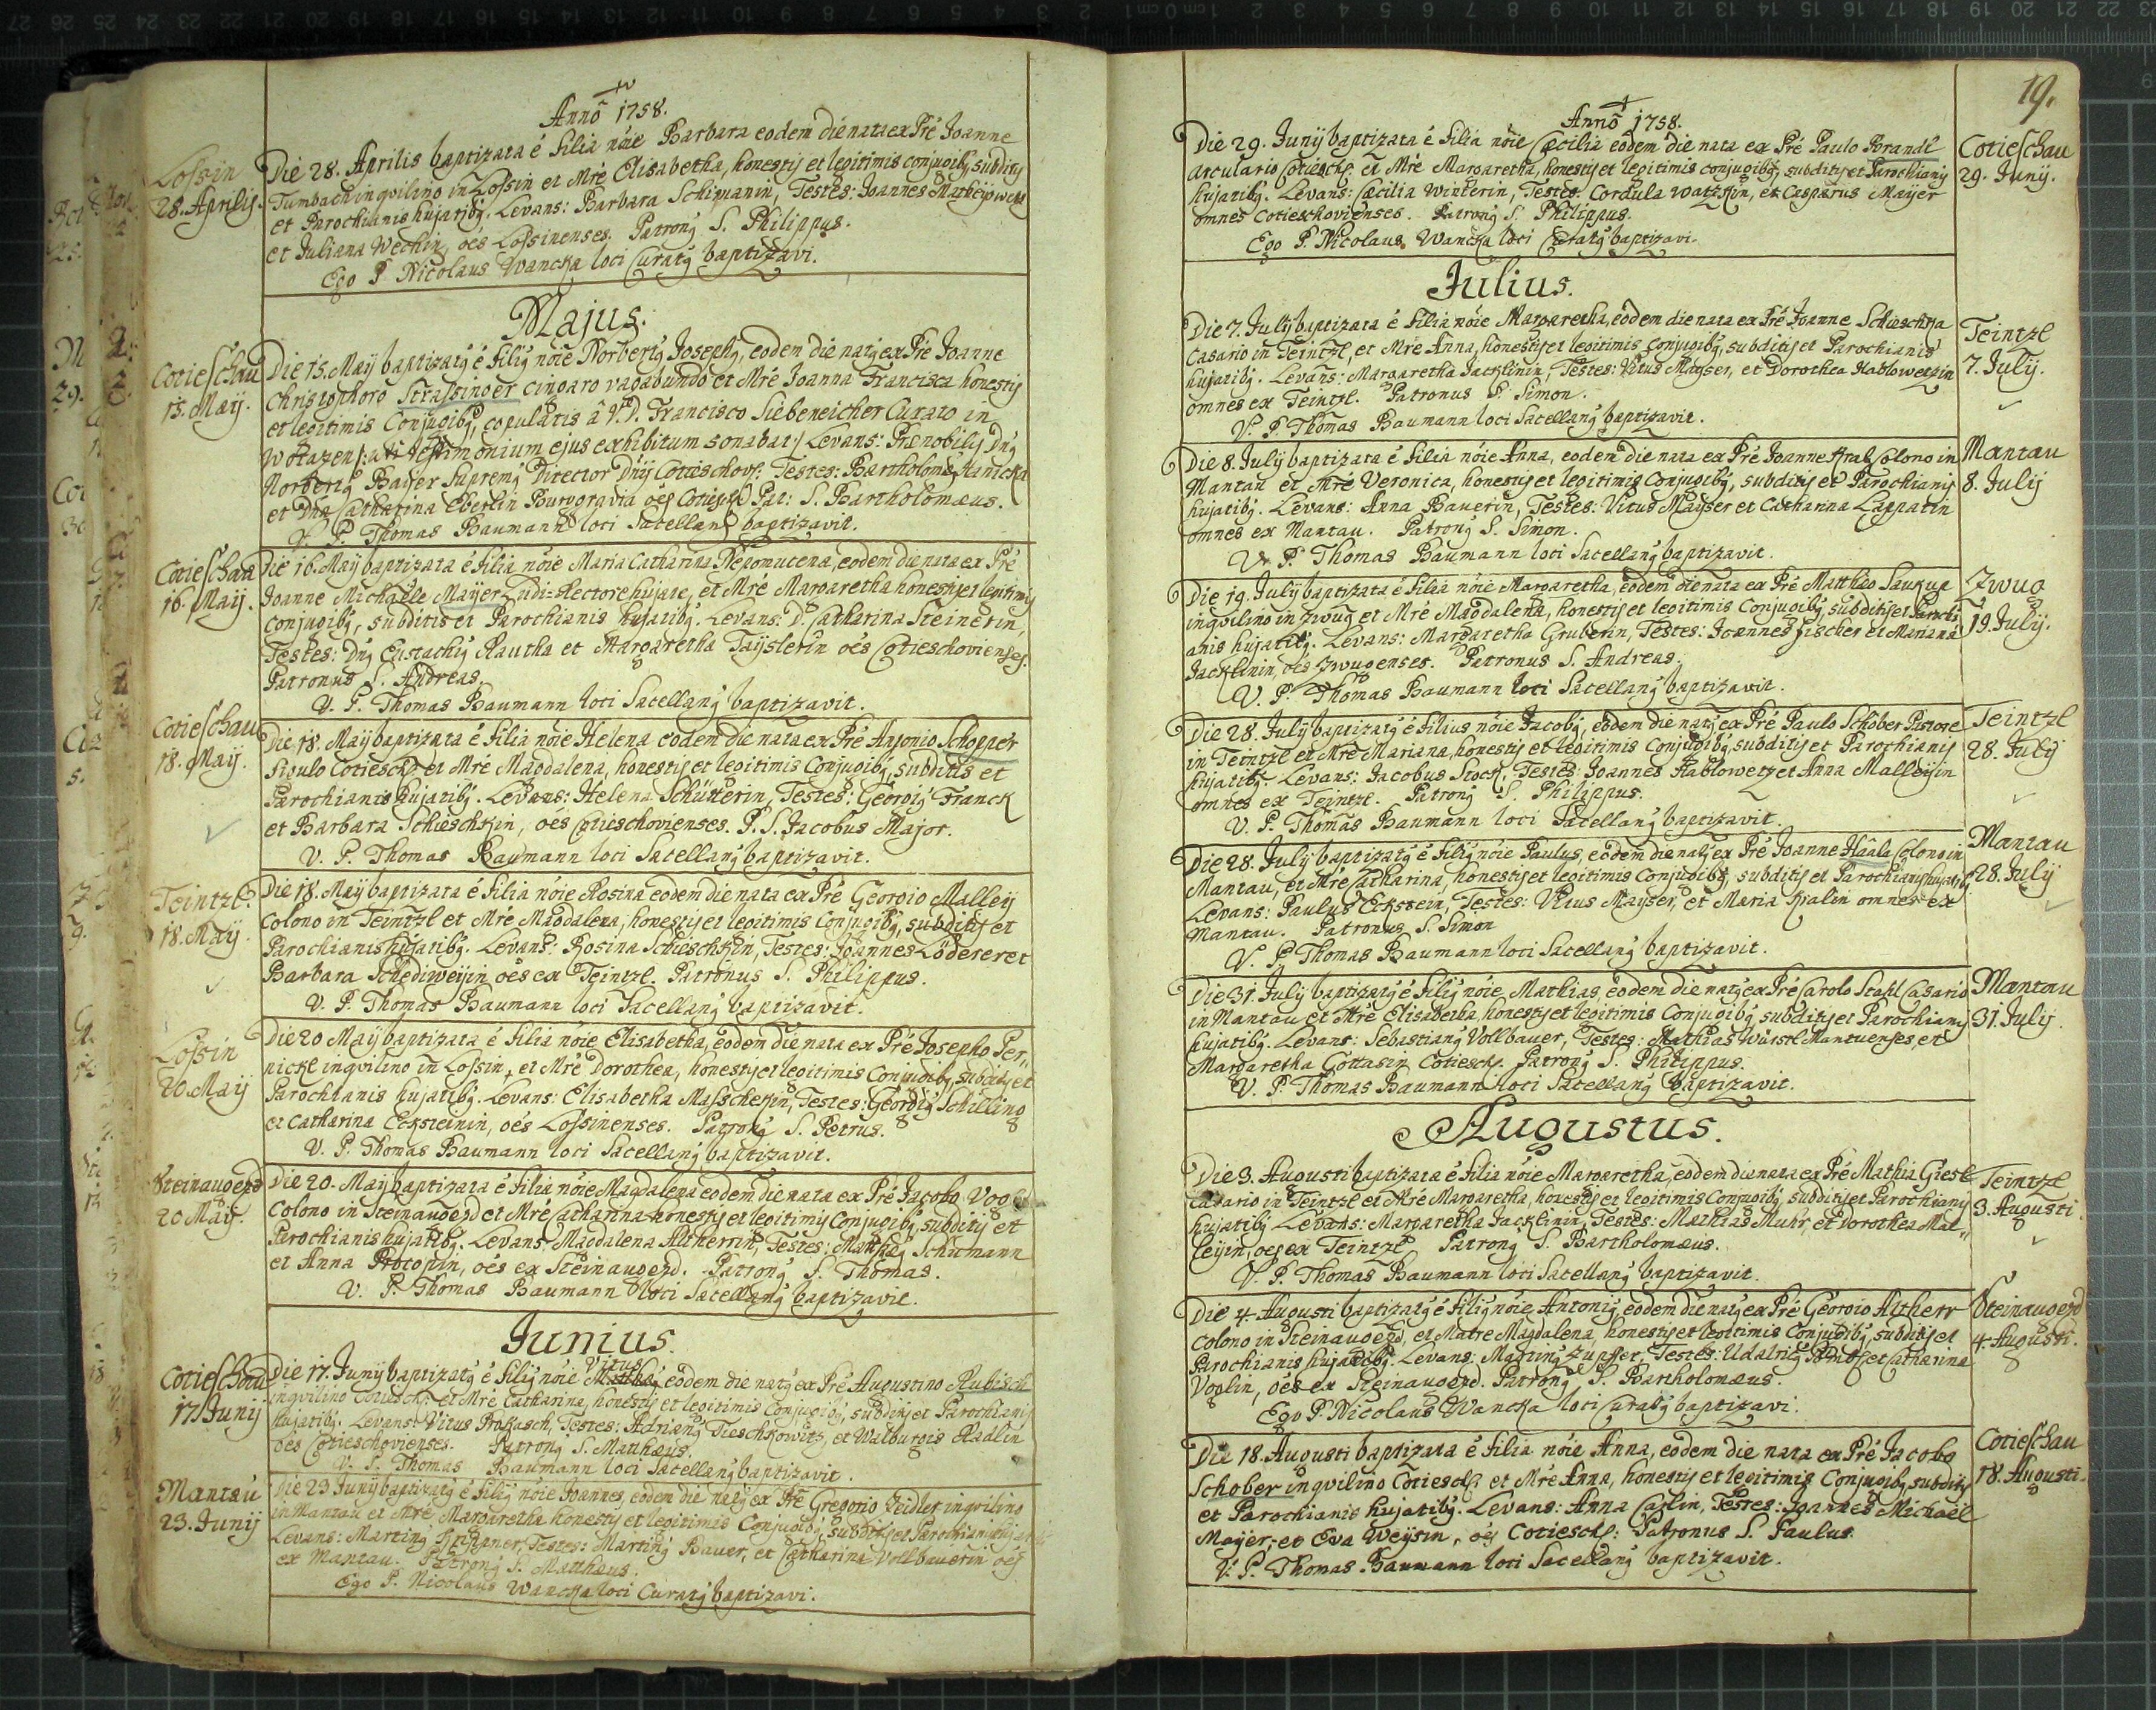 Anno 1758.
Lossin
28. Aprilis.
Die 28. Aprilis baptizata é filia nõie Barbara eodem die nata ex Prẽ Joanne
Tumbach inqvilino in Lossin et Mrẽ Elisabetha, honestis et legitimis conjugibg, subditis
et Parochianis hujatibg. Levans: Barbara Schippanin, Testes: Joannes
et Juliana Wechin, oẽs Lossinenses. Patrong S. Philippus.
Ego P. Nicolaus Wancka loci Curatg baptizavi.
Majus.
Cotieschau
15. Maij.
Die 15. Maij baptizatg é filig nõie Norbertg Josephg, eodem die natg ex Prẽ Joanne
Christophoro Strassinger cingaro vagabundo et Mrẽ Joanna Francisca honestis
et legitimis Conjugibg, copulatis â V.D. Francisco Siebeneicher Curato in
Wotazen |: uti testimonium ejus exhibitum sonabat :| Levans: Prænobilis Dng
Norbertg Bayer Supremg Director Dnij Cotieschov: Testes: Bartholomeg Hanicka
et Dna Catharina Eberlin Burggravia oẽs Cotiesch: Pat: S. Bartholomæus.
V. P. Thomas Baumann loci Sacellang baptizavit.
Cotieschau
16. Maij.
Die 16. Maij baptizata é filia nõie Maria Catharina Nepomucena, eodem die nata ex Prẽ
Joanne Michaële Mayer Ludi-Rectore hujate, et Mrẽ Margaretha honestis et legitimis
conjugibg, subditis et Parochianis hujatibg. Levans: D. Catharina Steinerin,
Testes: Dng Eustachig Rautha et Margaretha Taijslerin oẽs Cotieschovienses.
Patronus S. Andreas.
V. P. Thomas Baumann loci Sacellang baptizavit.
Cotieschau
18. Maij.
Die 18. Maij baptizata é filia nõie Helena eodem die nata ex Prẽ Antonio Schopper
Figulo Cotiesch: et Mrẽ Magdalena, honestis et legitimis Conjugibg, subditis et
Parochianis hujatibg. Levans: Helena Schusterin, Testes: Georgig Franck
et Barbara Schieschkin, oẽs Cotieschovienses. P. S. Jacobus Major.
V. P. Thomas Baumann loci Sacellang baptizavit.
Teintzl
18. Maij.
Die 18. Maij baptizata é filia nõie Rosina eodem die nata ex Prẽ Georgio Malleij
Colono in Teintzl et Mrẽ Magdalena, honestis et legitimis Conjugibg, subditis et
Parochianis hujatibg. Levans: Rosina Schieschkin, Testes: Joannes Löderer et
Barbara Schediweijin oẽs ex Teintzl. Patronus S. Philippus.
V. P. Thomas Baumann loci Sacellang baptizavit.
Lossin
20. Maij
Die 20 Maij baptizata é filia nõie Elisabetha, eodem die nata ex Prẽ Josepho Per„
nickl inqvilino in Lossin, et Mrẽ Dorothea, honestis et legitimis Conjugibg, subditis et
Parochianis hujatibg. Levans: Elisabetha Masschekin, Testes: Georgig Schilling
et Catharina Ecksteinin, oẽs Lossinenses. Patrong S. Petrus.
V. P. Thomas Baumann loci Sacellang baptizavit.
Steinaugezd
20 Maij.
Die 20. Maij baptizata é filia nõie Magdalena eodem die nata ex Prẽ Jacobo Vogl
Colono in Steinaugezd et Mrẽ Catharina honestis et legitimis Conjugibg, subditis et
Parochianis hujatibg. Levans: Magdalena Altherrin, Testes: Mattheg Schumann
et Anna Procopin, oẽs ex Steinaugezd. Patrong S. Thomas.
V. P. Thomas Baumann loci Sacellang baptizavit.
Junius.
Cotieschau
17. Junij
Vitus
Die 17. Junij baptizatg é filig nõie Matthæg, eodem die natg ex Prẽ Augustino Rubisch
inqvilino Cotiesch: et Mrẽ Catharina, honestis et legitimis Conjugibg, subditis et Parochianis
hujatibg. Levans: Vitus Prokasch, Testes: Adriang Tieschkowitz, et Walburgis Radlin
oẽs Cotieschovienses. Patrong S. Matthæus.
V. P. Thomas Baumann loci Sacellang baptizavit.
Mantau
23. Junij
Die 23 Junij baptizatg é filig nõie Joannes, eodem die natg ex Prẽ Gregorio Zeidler inqvilino
in Mantau et Mrẽ Margaretha honestis et legitimis Conjugibg, subditis et Parochianis hujatibg
Levans: Marting, Testes: Marting Bauer, et Catharina Vollbauerin oẽs
ex Mantau. Patrong S. Matthæus.
Ego P. Nicolaus Wancka loci Curatg baptizavi.
19.
Anno 1758.
Die 29. Junij baptizata é filia nõie Cæcilia eodem die nata ex Prẽ Paulo Brandl
arculario Cotiesch: et Mrẽ Margaretha, honestis et legitimis conjugibg, subditis et Parochianis
hujatibg. Levans: Cæcilia Winterin, Testes: Cordula Watzkin, et Casparus Maijer
omnes Cotieschovienses. Patrong S. Philippus.
Ego P. Nicolaus Wancka loci Curatg baptizavi.
Cotieschau
29. Junij.
Julius.
Die 7. Julij baptizata é filia nõie Margaretha, eodem die nata ex Prẽ Joanne Schieschka
Casario in Teintzl, et Mrẽ Anna, honestis et legitimis Conjugibg, subditis et Parochianis
hujatibg. Levans: Margaretha Jacklinin, Testes: Vitus Mayser, et Dorothea Hablowetzin
omnes ex Teintzl. Patronus S. Simon.
V. P. Thomas Baumann loci Sacellang baptizavit.
Teintzl
7. Julij.
Die 8. Julij baptizata é filia nõie Anna, eodem die nata ex Prẽ Joanne Kral Colono in
Mantau et Mrẽ Veronica, honestis et legitimis Conjugibg, subditis et Parochianis
hujatibg. Levans: Anna Bauerin, Testes: Vitus Mayser et Catharina Lappatin
omnes ex Mantau. Patrong S. Simon.
V. P. Thomas Baumann loci Sacellang baptizavit.
Mantau
8. Julij
Die 19. Julij baptizata é filia nõie Margaretha, eodem die nata ex Prẽ Matthæo Saukup
inqvilino in Zwug et Mrẽ Magdalena, honestis et legitimis Conjugibg, subditis et Parochi
anis hujatibg. Levans: Margaretha Gruberin, Testes: Joannes Fischer et Mariana
Jacklinin, oẽs Zwugenses. Patronus S. Andreas.
V. P. Thomas Baumann loci Sacellang baptizavit.
Zwug
19. Julij.
Die 28. Julij baptizatg é filius nõie Jacobg, eodem die natg ex Prẽ Paulo Schöber Pastore
in Teintzl et Mrẽ Mariana, honestis et legitimis Conjugibg, subditis et Parochianis
hujatibg. Levans: Jacobus Stock, Testes: Joannes Hablowetz et Anna Malleijin
omnes ex Teintzl. Patrong S. Philippus.
V. P. Thomas Baumann loci Sacellang baptizavit.
Teintzl
28. Julij
Die 28. Julij baptizatg é filig nõie Paulus, eodem die natg ex Prẽ Joanne Haala Colono in
Mantau, et Mrẽ Catharina, honestis et legitimis Conjugibg, subditis et Parochianis hujatibg.
Levans: Paulus Eckstein, Testes: Vitus Mayser, et Maria Kralin omnes ex
Mantau. Patronus S. Simon
V. P. Thomas Baumann loci Sacellang baptizavit.
Mantau
28. Julij
Die 31. Julij baptizatg é filig nõie Mathias, eodem die natg ex Prẽ Carolo Stahl Casario
in Mantau et Mrẽ Elisabetha, honestis et legitimis Conjugibg, subditis et Parochianis
hujatibg. Levans: Sebastiang Vollbauer, Testes: Mathias Würstl Mantuenses, et
Margaretha Gottasin Cotiesch. Patrong S. Philippus.
V. P. Thomas Baumann loci Sacellang baptizavit.
Mantau
31. Julij.
Augustus.
Die 3. Augusti baptizata é filia nõie Margaretha, eodem die nata ex Prẽ Mathia Giesl
Casario in Teintzl et Mrẽ Margaretha, honestis et legitimis Conjugibg, subditis et Parochianis
hujatibg. Levans: Margaretha Jacklinin, Testes: Mathias Muhr, et Dorothea Mal„
leijin, oẽs ex Teintzl. Patrong S. Bartholomæus.
V. P. Thomas Baumann loci Sacellang baptizavit.
Teintzl
3. Augusti.
Die 4. Augusti baptizatg é filig nõie Antonig, eodem die natg ex Prẽ Georgio Altherr
Colono in Steinaugezd, et Matre Magdalena, honestis et legitimis Conjugibg, subditis et
Parochianis hujatibg. Levans: Marting Zupffer, Testes: Udalricg et Catharina
Voglin, oẽs ex Steinaugezd. Patrong S. Bartholomæus.
Ego P. Nicolaus Wancka loci Curatg baptizavi.
Steinaugezd
4. Augusti.
Die 18. Augusti baptizata é filia nõie Anna, eodem die nata ex Prẽ Jacobo
Schober inqvilino Cotiesch: et Mrẽ Anna, honestis et legitimis Conjugibg, subditis
et Parochianis hujatibg. Levans: Anna Carlin, Testes: Joannes Michaël
Mayer, et Eva Weysin, oẽs Cotiesch: Patronus S. Paulus.
V. P. Thomas Baumann loci Sacellang baptizavit.
Cotieschau
18. Augusti.